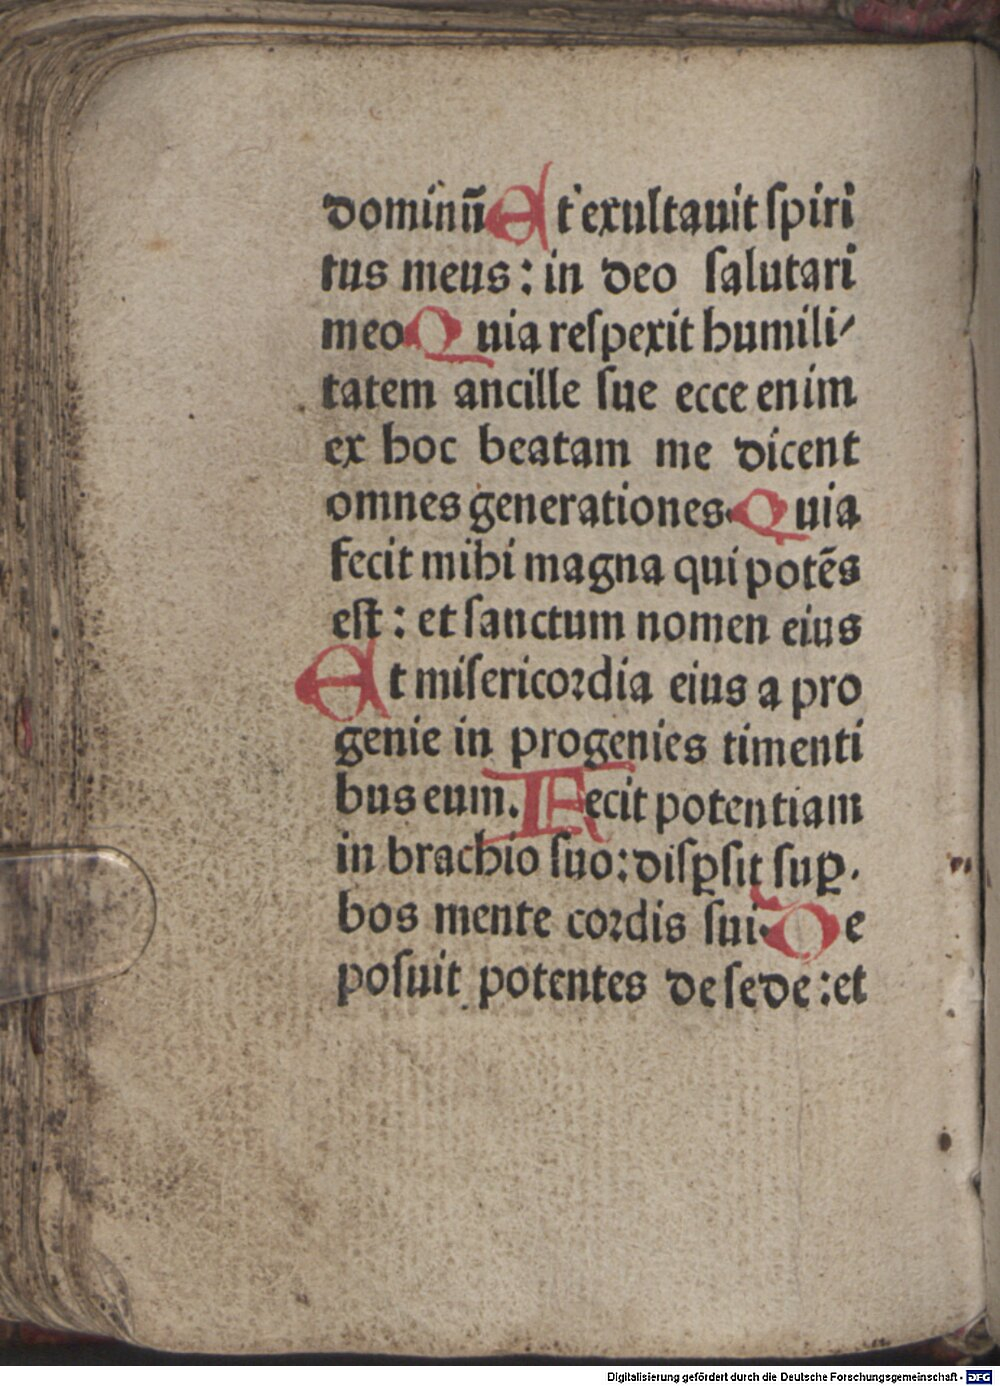 dominū Et exultauit ſpiri
tus meus : in deo ſalutari
meo Quia reſpexit humili⸗
tatem ancille ſue ecce enim
ex hoc beatam me dicent
omnes generationes. Quia
fecit mihi magna qui potēs
eſt : et ſanctum nomen eius
Et miſericoꝛdia eius a pro
genie in progenies timenti
bus eum. Fecit potentiam
in brachio ſuo : diſꝑſit ſuꝑ.
bos mente coꝛdis ſui. De
poſuit potentes de ſede : et
Digitalisierung gefördert durch die Deutsche Forschungsgemeinschaft - DFG